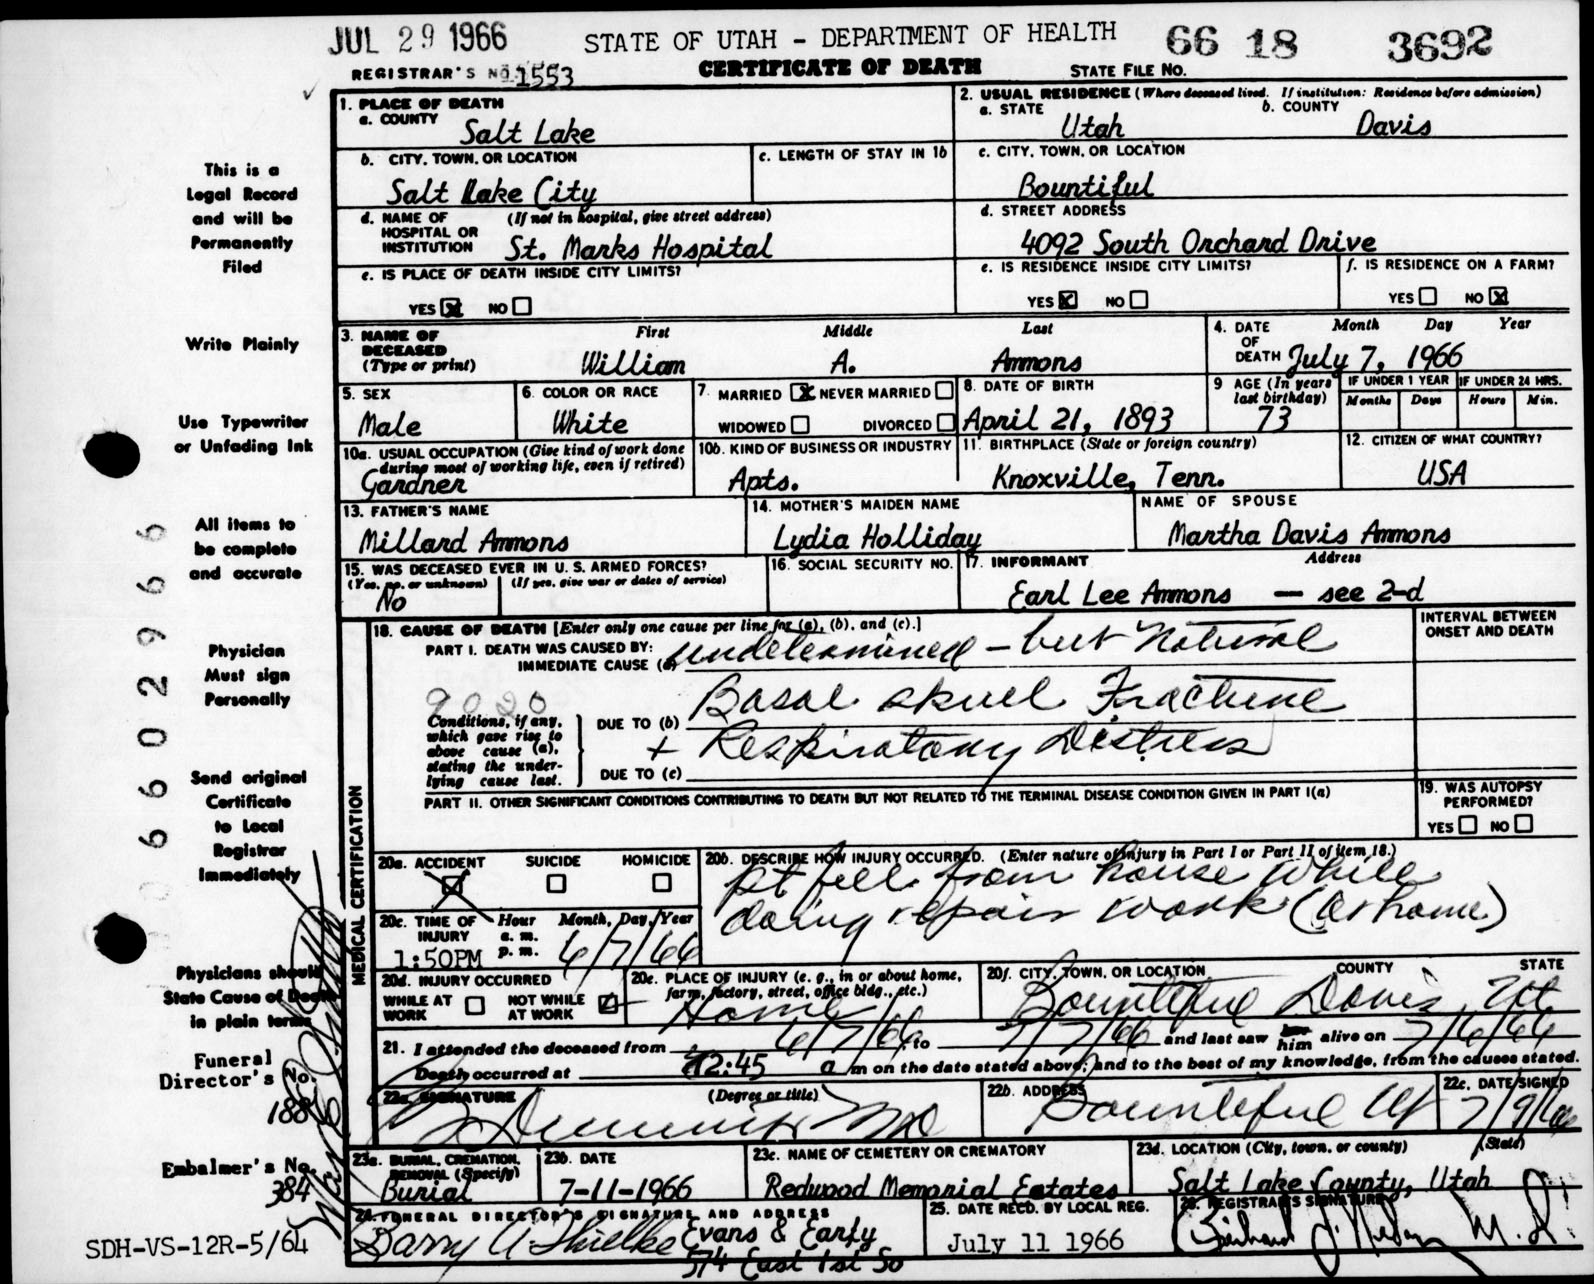 JUL 29 1966 STATE OF UTAH - DEPARTMENT OF HEALTH 66 18 3692
REGISTRAR'S No. 1553 CERTIFICATE OF DEATH STATE FILE NO.
This is a Legal Record and will be Permanently Filed
Write Plainly
Use Typewriter or Unfading Ink
All items to be complete and accurate
Physician Must sign Personally
Send original Certificate to Local Registrar Immediately
Physicians should State Cause of Death in plain terms
Funeral Director's No.
188
Embalmer's No.
384
SDH-VS-12R-5/64
6602966
1. PLACE OF DEATH
a. COUNTY Salt Lake
2. USUAL RESIDENCE (Where deceased lived. If institution: Residence before admission)
a. STATE Utah b. COUNTY Davis
b. CITY, TOWN, OR LOCATION Salt Lake City
c. LENGTH OF STAY IN 1b
c. CITY, TOWN, OR LOCATION Bountiful
d. NAME OF HOSPITAL OR INSTITUTION (If not in hospital, give street address) St. Marks Hospital
d. STREET ADDRESS 4092 South Orchard Drive
e. IS PLACE OF DEATH INSIDE CITY LIMITS?
YES X NO
e. IS RESIDENCE INSIDE CITY LIMITS?
YES X NO
f. IS RESIDENCE ON A FARM?
YES NO X
3. NAME OF DECEASED (Type or print) First Middle Last
William A. Ammons
4. DATE OF DEATH Month Day Year
July 7, 1966
5. SEX Male
6. COLOR OR RACE White
7. MARRIED X NEVER MARRIED
WIDOWED DIVORCED
8. DATE OF BIRTH April 21, 1893
9 AGE (In years last birthday) 73
IF UNDER 1 YEAR Months Days
IF UNDER 24 HRS. Hours Min.
10a. USUAL OCCUPATION (Give kind of work done during most of working life, even if retired) Gardner
10b. KIND OF BUSINESS OR INDUSTRY Apts.
11. BIRTHPLACE (State or foreign country) Knoxville, Tenn.
12. CITIZEN OF WHAT COUNTRY? USA
13. FATHER'S NAME Millard Ammons
14. MOTHER'S MAIDEN NAME Lydia Holliday
NAME OF SPOUSE Martha Davis Ammons
15. WAS DECEASED EVER IN U.S. ARMED FORCES?
(Yes, no, or unknown) (If yes, give war or dates of service)
No
16. SOCIAL SECURITY NO.
17. INFORMANT Address
Earl Lee Ammons — see 2-d
MEDICAL CERTIFICATION
18. CAUSE OF DEATH [Enter only one cause per line for (a), (b), and (c).]
PART I. DEATH WAS CAUSED BY:
IMMEDIATE CAUSE (a) undetermined - but Natural
INTERVAL BETWEEN ONSET AND DEATH
9020
Conditions, if any, which gave rise to above cause (a), stating the underlying cause last.
DUE TO (b) Basal skull Fracture
+ Respiratory Distress
DUE TO (c)
PART II. OTHER SIGNIFICANT CONDITIONS CONTRIBUTING TO DEATH BUT NOT RELATED TO THE TERMINAL DISEASE CONDITION GIVEN IN PART I(a)
19. WAS AUTOPSY PERFORMED?
YES NO
20a. ACCIDENT X SUICIDE HOMICIDE
20b. DESCRIBE HOW INJURY OCCURRED. (Enter nature of injury in Part I or Part II of item 18.)
pt fell from house while
doing repair work (at home)
20c. TIME OF INJURY Hour a.m. p.m. Month, Day, Year
1:50PM 6/7/66
20d. INJURY OCCURRED
WHILE AT WORK NOT WHILE AT WORK
20e. PLACE OF INJURY (e. g., in or about home, farm, factory, street, office bldg., etc.)
Home
20f. CITY, TOWN, OR LOCATION COUNTY STATE
Bountiful Davis Ut
21. I attended the deceased from 6/7/66 to 7/7/66 and last saw her him alive on 7/6/66
Death occurred at 12:45 a m on the date stated above; and to the best of my knowledge, from the causes stated.
22a. SIGNATURE (Degree or title)
MD
22b. ADDRESS Bountiful Ut
22c. DATE SIGNED 7/9/66
23a. BURIAL, CREMATION, REMOVAL (Specify) Burial
23b. DATE 7-11-1966
23c. NAME OF CEMETERY OR CREMATORY Redwood Memorial Estates
23d. LOCATION (City, town, or county) (State) Salt Lake County, Utah
24. FUNERAL DIRECTOR'S SIGNATURE AND ADDRESS
Evans & Early
574 East 1st So
25. DATE RECD. BY LOCAL REG. July 11 1966
26. REGISTRAR'S SIGNATURE
M. D.